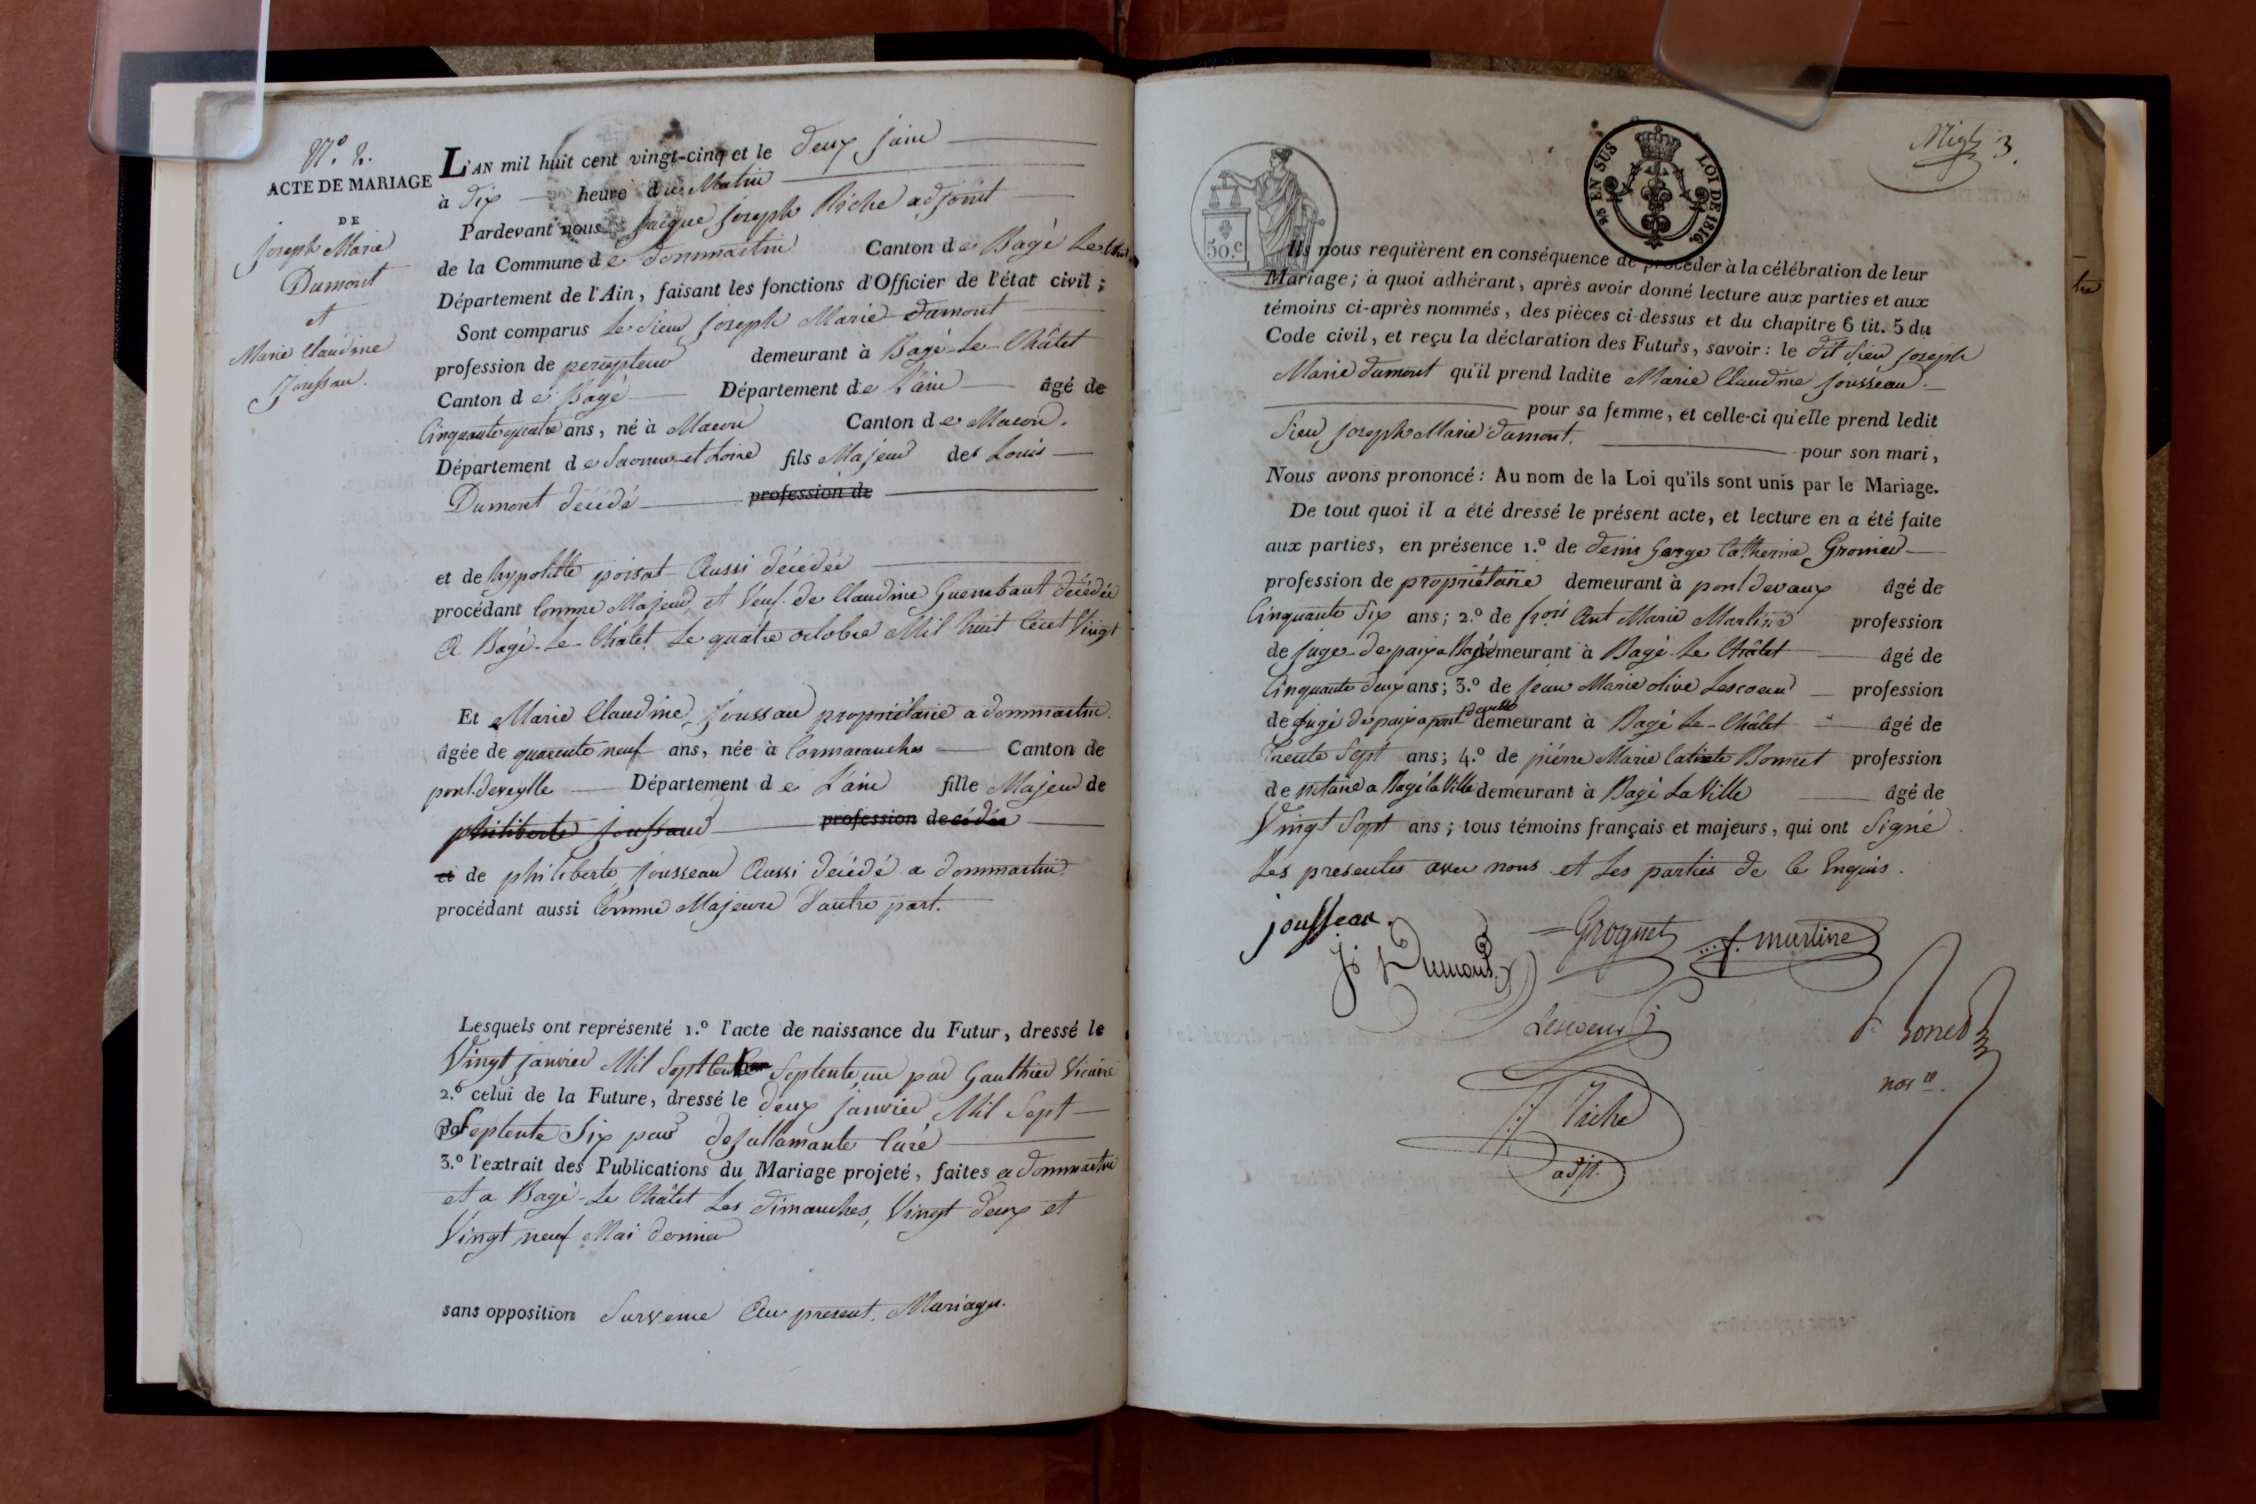 N.º 2.
ACTE DE MARIAGE
DE
Joseph Marie
Dumont
et
Marie Claudine
Jousseau.
L'AN mil huit cent vingt-cinq et le deux juin
à dix heure du Matin
Pardevant nous Jacque Joseph Riche adjoint
de la Commune de Dommartin Canton de Bagé Le Châtel
Département de l'Ain, faisant les fonctions d'Officier de l'état civil;
Sont comparus Le Sieur Joseph Marie Dumont
profession de percepteur demeurant à Bagé-Le-Châtel
Canton de Bagé Département de L'ain âgé de
Cinquante quatre ans, né à Macon Canton de Macon.
Département de Saonne-et-Loire fils Majeur de Louis
Dumont décédé profession de
et de hypolitte poisat Aussi décédée
procédant Comme Majeur et Veuf de Claudine Guerrebaut décédée
A Bagé-Le-Châtel Le quatre octobre Mil huit Cent Vingt
Et Marie Claudine Joussau propriétaire a dommartin.
âgée de quarente neuf ans, née à Cormoranche Canton de
pont-deveylle Département de L'ain fille Majeur de
philiberte Joussaud profession décédée
et de philiberte Jousseau Aussi décédé a dommartin
procédant aussi Comme Majeure d'autre part.
Lesquels ont représenté 1.º l'acte de naissance du Futur, dressé le
Vingt janvier Mil Sept Cent Septente un par Gauthier Vicaire
2.º celui de la Future, dressé le deux janvier Mil Sept
Septente Six par Desallamante Curé
3.º l'extrait des Publications du Mariage projeté, faites a dommartin
et a Bagé-Le Châtel Les dimanches, Vingt deux et
Vingt neuf Mai dernier
sans opposition Survenue Au present Mariage.
3.
EN SUS LOI DE 1816.
50.c
Ils nous requièrent en conséquence de procéder à la célébration de leur
Mariage; à quoi adhérant, après avoir donné lecture aux parties et aux
témoins ci-après nommés, des pièces ci-dessus et du chapitre 6 tit. 5 du
Code civil, et reçu la déclaration des Futurs, savoir: le dit Sieur Joseph
Marie dumont qu'il prend ladite Marie Claudine Jousseau.
pour sa femme, et celle-ci qu'elle prend ledit
Sieur Joseph Marie Dumont. pour son mari,
Nous avons prononcé: Au nom de la Loi qu'ils sont unis par le Mariage.
De tout quoi il a été dressé le présent acte, et lecture en a été faite
aux parties, en présence 1.º de denis George Catherine
profession de propriétaire demeurant à pont devaux âgé de
Cinquante Six ans; 2.º de frois Ant Marie Martine profession
de juge-de paix a Bagé demeurant à Bagé Le Châtel âgé de
Cinquante deux ans; 3.º de Jean Marie olive Lescoeur profession
de juge de paix a pont demeurant à Bagé Le-Châtel âgé de
Trente Sept ans; 4.º de piérre Marie Bonnet profession
de notaire a Bagé la Ville demeurant à Bagé La Ville âgé de
Vingt Sept ans; tous témoins français et majeurs, qui ont Signé
Les presentes avec nous et Les parties de Ce Enquis.
jousseau.
J. Dumont
Groguet
f. martine
Lescoeur
Bonnet
nore.
J. J. Riche
adjt.